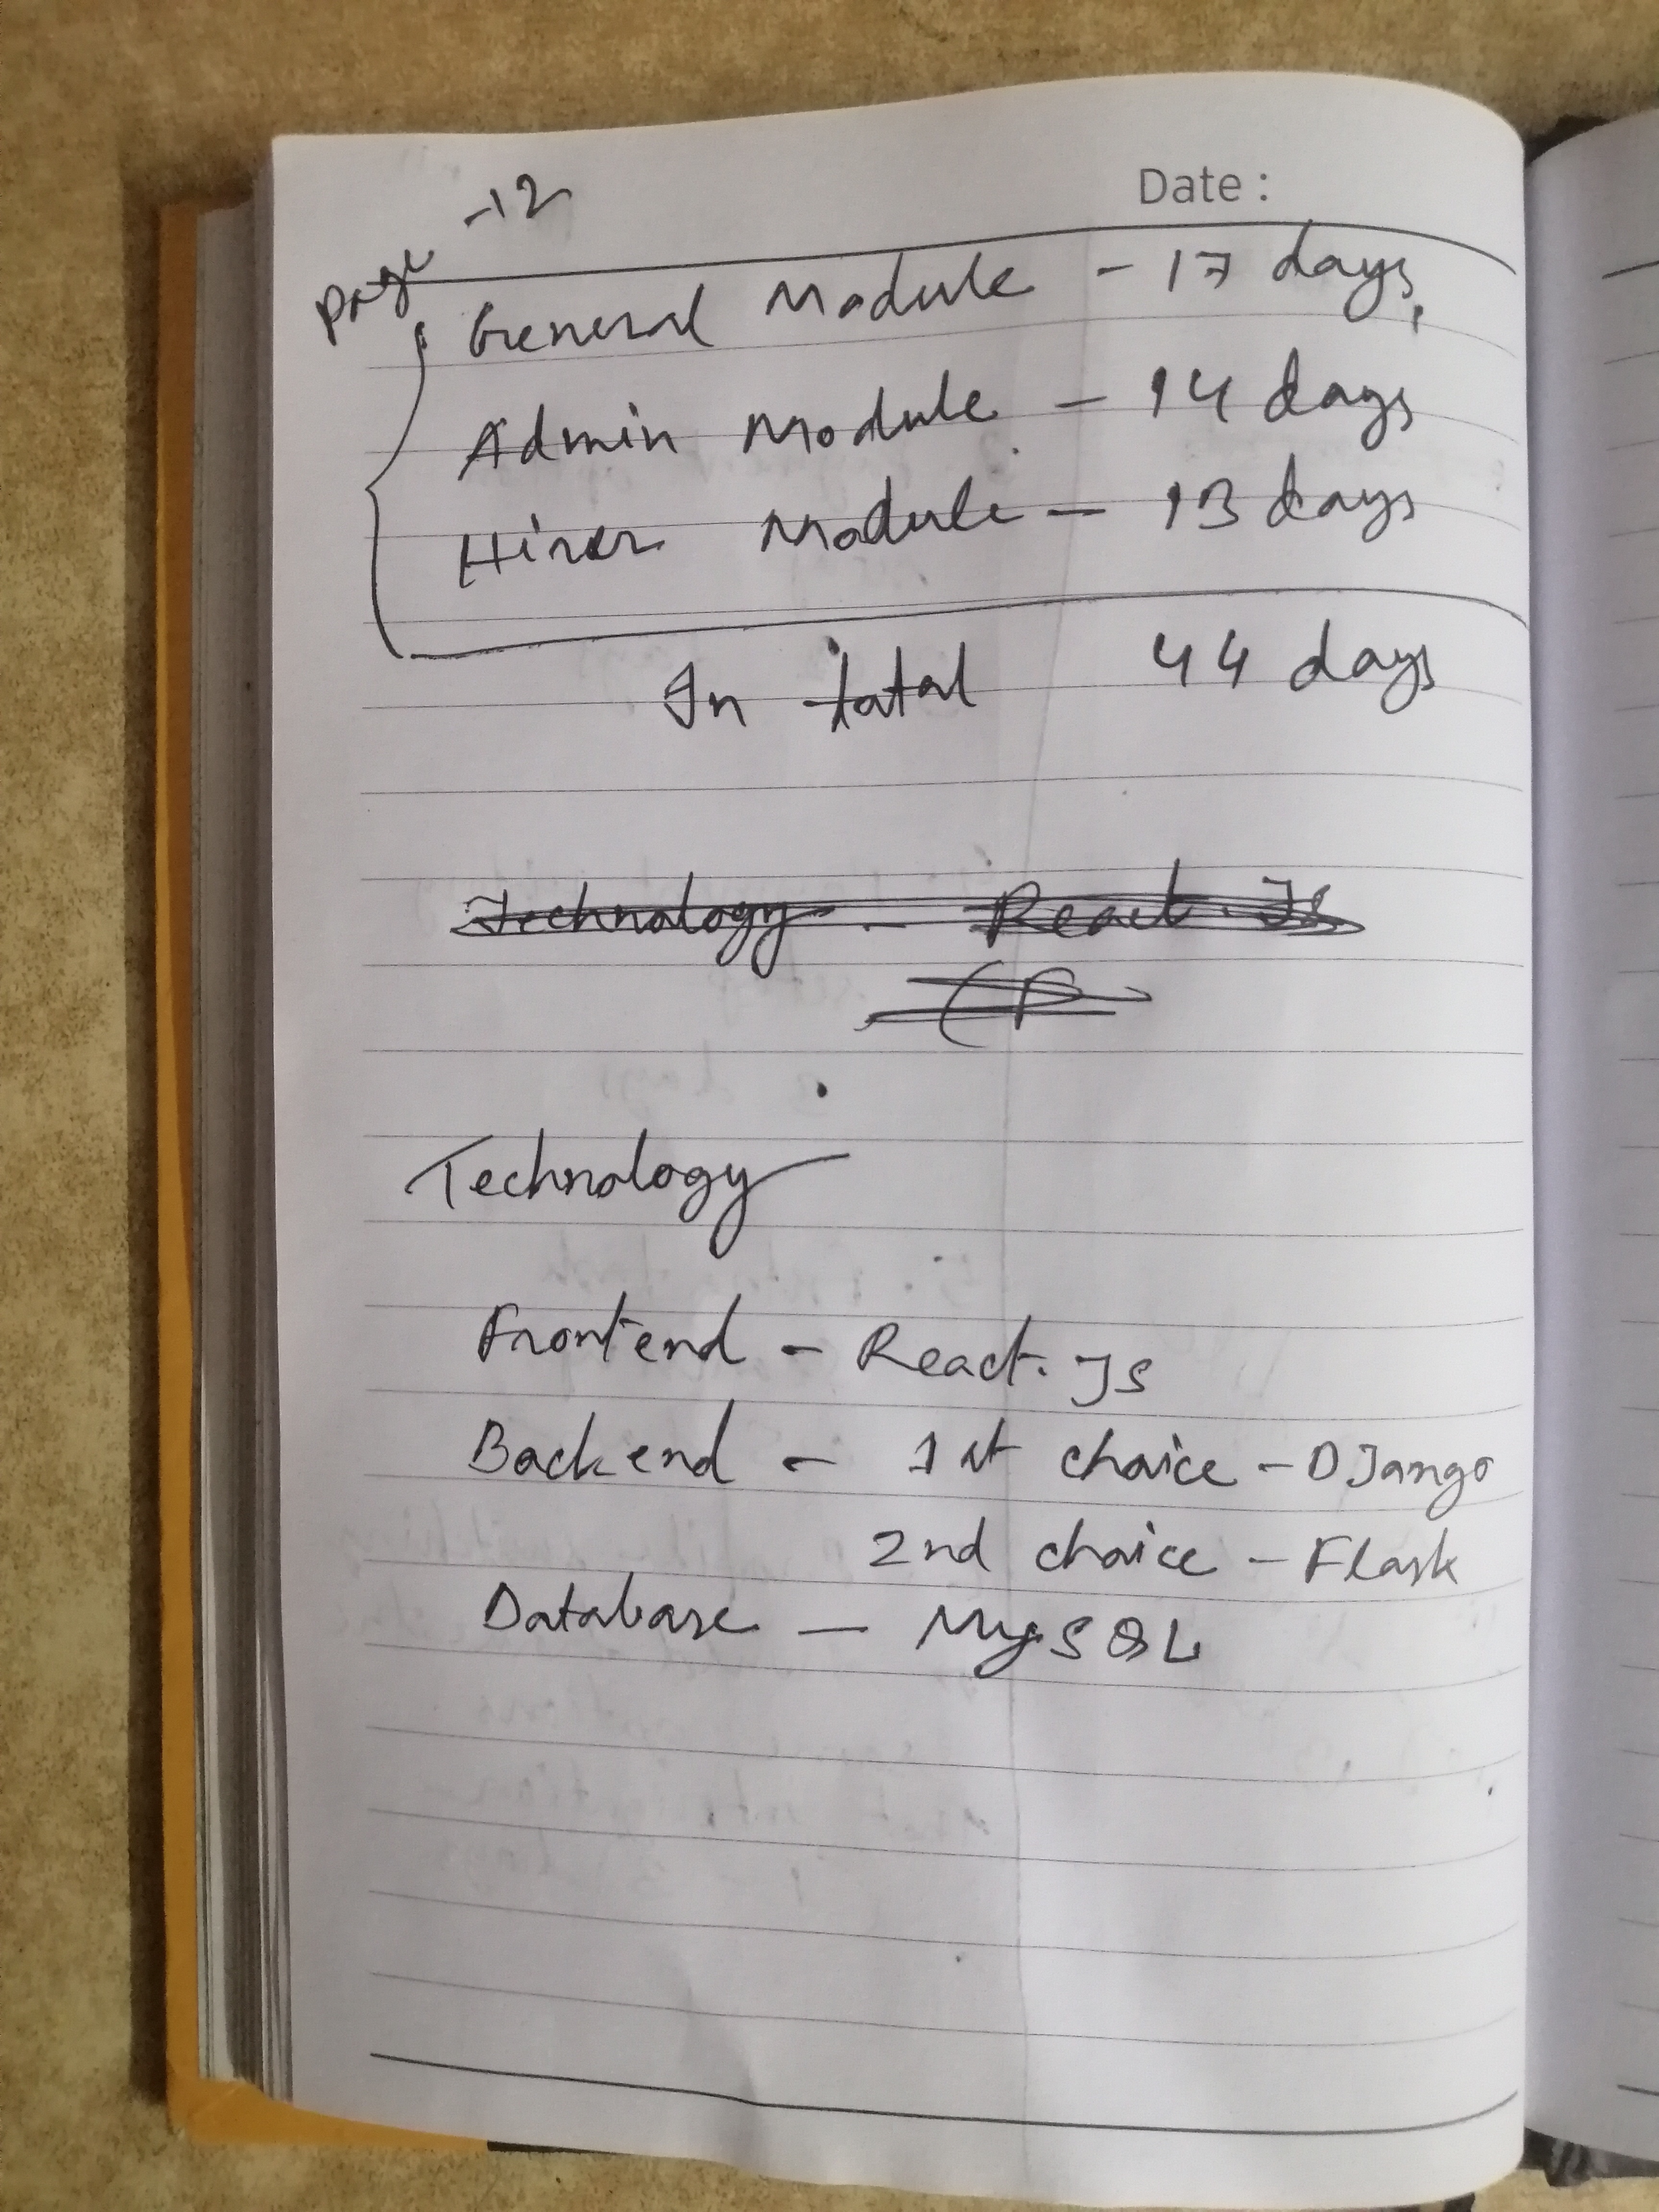 Page -12
Date :
General Module - 17 days,
Admin Module - 14 days
Hirer Module - 13 days
In total 44 days
Technology - React.Js
(B
Technology
Frontend - React.Js
Backend - 1st choice - DJango
2nd choice - Flask
Database - MySQL